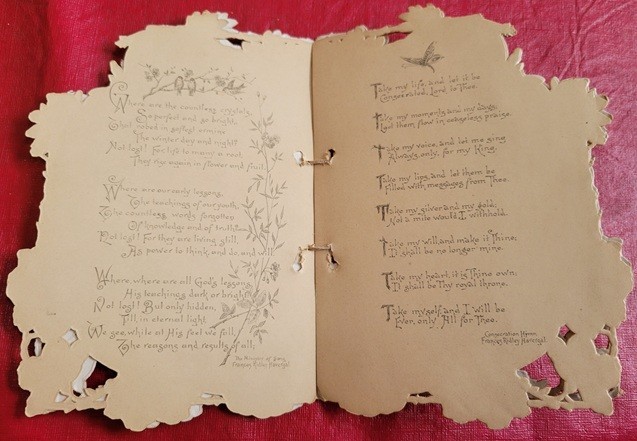 Where are the countless crystals,
So perfect and so bright,
That robed in softest ermine
The winter day and night?
Not lost! For life to many a root,
They rise again in flower and fruit.
Where are our early lessons,
The teachings of our youth,
The countless words forgotten
Of knowledge and of truth?
Not lost! For they are living still,
As power to think, and do, and will.
Where, where are all God's lessons,
His teachings dark or bright?
Not lost! But only hidden,
Till, in eternal light,
We see, while at His feet we fall,
The reasons and results of all.
The Ministry of Song.
Frances Ridley Havergal
Take my life, and let it be
Consecrated, Lord, to Thee.
Take my moments and my days,
Let them flow in ceaseless praise.
Take my voice, and let me sing
Always, only, for my King.
Take my lips, and let them be
Filled with messages from Thee.
Take my silver and my gold;
Not a mite would I withhold.
Take my will, and make it Thine;
It shall be no longer mine.
Take my heart, it is Thine own;
It shall be Thy royal throne.
Take myself, and I will be
Ever, only, All for Thee.
Consecration Hymn.
Frances Ridley Havergal